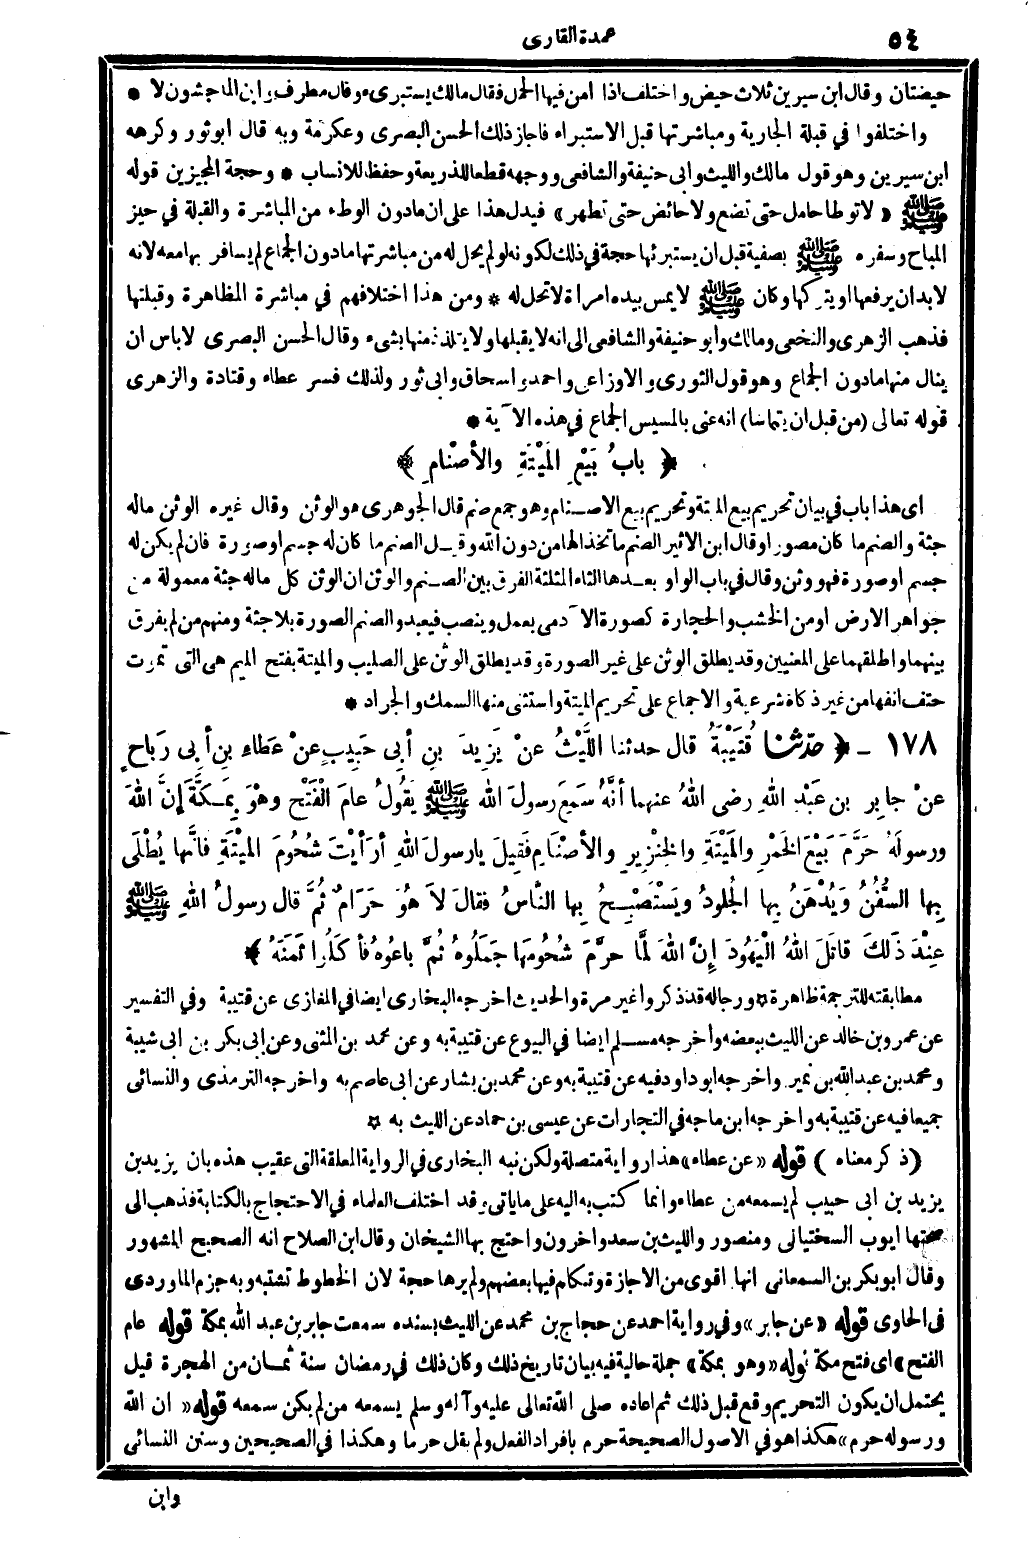 ٥٤
عمدة القارى
حيضتان وقال ابن سيرين ثلاث حيض واختلف اذا امن فيها الحمل فقال مالك يستبرىء وقال مطرف وابن الماجشون لا *
واختلفوا في قبلة الجارية ومباشرتها قبل الاستبراء فاجاز ذلك الحسن البصرى وعكرمة وبه قال ابو ثور وكرهه
ابن سيرين وهو قول مالك والليث وابى حنيفة والشافعى ووجهه قطعا للذريعة وحفظا للانساب * وحجة المجيزين قوله
ﷺ « لا توطا حامل حتى تضع ولا حائض حتى تطهر » فيدل هذا على ان مادون الوطء من المباشرة والقبلة في حيز
المباح وسفره ﷺ بصفية قبل ان يستبرئها حجة في ذلك لكونه لو لم يحل له من مباشرتها مادون الجماع لم يسافر بها معه لانه
لا بد ان يرفعها او يتركها وكان ﷺ لا يمس بيده امراة لا تحل له * ومن هذا اختلافهم في مباشرة المظاهرة وقبلتها
فذهب الزهرى والنخعى ومالك وابو حنيفة والشافعى الى انه لا يقبلها ولا يتلذذ منها بشىء وقال الحسن البصرى لاباس ان
ينال منها مادون الجماع وهو قول الثورى والاوزاعى واحمد واسحاق وابى ثور ولذلك فسر عطاء وقتادة والزهرى
قوله تعالى (من قبل ان يتماسا) انه عنى بالمسيس الجماع في هذه الآية *
﴿ بابُ بَيْعِ المَيْتَةِ والأصْنامِ ﴾
اى هذا باب في بيان تحريم بيع الميتة وتحريم بيع الاصنام وهو جمع صنم قال الجوهرى هو الوثن وقال غيره الوثن ماله
جثة والصنم ما كان مصورا وقال ابن الاثير الصنم ما تخذ الها من دون الله وقيل الصنم ما كان له جسم او صورة فان لم يكن له
جسم او صورة فهو وثن وقال في باب الواو بعدها الثاء المثلثة الفرق بين الصنم والوثن ان الوثن كل ماله جثة معمولة من
جواهر الارض او من الخشب والحجارة كصورة الآدمى يعمل وينصب فيعبد والصنم الصورة بلا جثة ومنهم من لم يفرق
بينهما واطلقهما على المعنيين وقد يطلق الوثن على غير الصورة وقد يطلق الوثن على الصليب والميتة بفتح الميم هى التى تموت
حتف انفها من غير ذكاة شرعية والاجماع على تحريم الميتة واستثنى منها السمك والجراد *
١٧٨ - ﴿ حدّثنا قُتَيْبَةُ قال حدثنا اللَّيْثُ عنْ يَزِيدَ بنِ أبى حَبِيبٍ عنْ عَطَاءِ بنِ أبى رَباحٍ
عنْ جابِرِ بن عَبْدِ اللهِ رضى اللهُ عنهما أنَّهُ سَمِعَ رسولَ اللهِ ﷺ يَقُولُ عامَ الْفَتْحِ وهْوَ بِمَكَّةَ إنَّ اللهَ
ورسولَهُ حَرَّمَ بَيْعَ الخَمْرِ والمَيْتَةِ والخِنْزِيرِ والأصْنامِ فَقِيلَ يارسولَ اللهِ أرَأيْتَ شُحُومَ المَيْتَةِ فانَّها يُطْلَى
بِها السُّفُنُ وَيُدْهَنُ بِها الجُلُودُ ويَسْتَصْبِحُ بِها النَّاسُ فقالَ لاَ هُوَ حَرَامٌ ثُمَّ قال رسولُ اللهِ ﷺ
عِنْدَ ذَلِكَ قاتَلَ اللهُ الْيَهُودَ إنَّ اللهَ لمَّا حرَّمَ شُحُومَها جَمَلُوهُ ثُمَّ باعُوهُ فأكَلُوا ثَمَنَهُ ﴾
مطابقته للترجمة ظاهرة * ورجاله قد ذكروا غير مرة والحديث اخرجه البخارى ايضا فى المغازى عن قتيبة وفي التفسير
عن عمرو بن خالد عن الليث ببعضه واخرجه مسلم ايضا في البيوع عن قتيبة به وعن محمد بن المثنى وعن ابى بكر بن ابى شيبة
ومحمد بن عبدالله بن نمير واخرجه ابو داود فيه عن قتيبة به وعن محمد بن بشار عن ابى عاصم به واخرجه الترمذى والنسائى
جميعا فيه عن قتيبة به واخرجه ابن ماجه في التجارات عن عيسى بن حماد عن الليث به *
(ذكر معناه) قوله «عن عطاء» هذا رواية متصلة ولكن نبه البخارى في الرواية المعلقة التى عقيب هذه بان يزيد بن
يزيد بن ابى حبيب لم يسمعه من عطاء وانما كتب به اليه على ما ياتى وقد اختلف العلماء في الاحتجاج بالكتابة فذهب الى
صحتها ايوب السختيانى ومنصور والليث بن سعد واخرون واحتج بها الشيخان وقال ابن الصلاح انه الصحيح المشهور
وقال ابو بكر بن السمعانى انها اقوى من الاجازة وتكلم فيها بعضهم ولم يرها حجة لان الخطوط تشتبه وبه جزم الماوردى
فى الحاوى قوله «عن جابر» وفي رواية احمد عن حجاج بن محمد عن الليث بسنده سمعت جابر بن عبد الله بمكة قوله عام
الفتح» اى فتح مكة قوله «وهو بمكة» جملة حالية فيه بيان تاريخ ذلك وكان ذلك في رمضان سنة ثمان من الهجرة قيل
يحتمل ان يكون التحريم وقع قبل ذلك ثم اعاده صلى الله تعالى عليه وآله وسلم يسمعه من لم يكن سمعه قوله «ان الله
ورسوله حرم» هكذا هو في الاصول الصحيحة حرم بافراد الفعل ولم يقل حرما وهكذا في الصحيحين وسنن النسائى
وابن